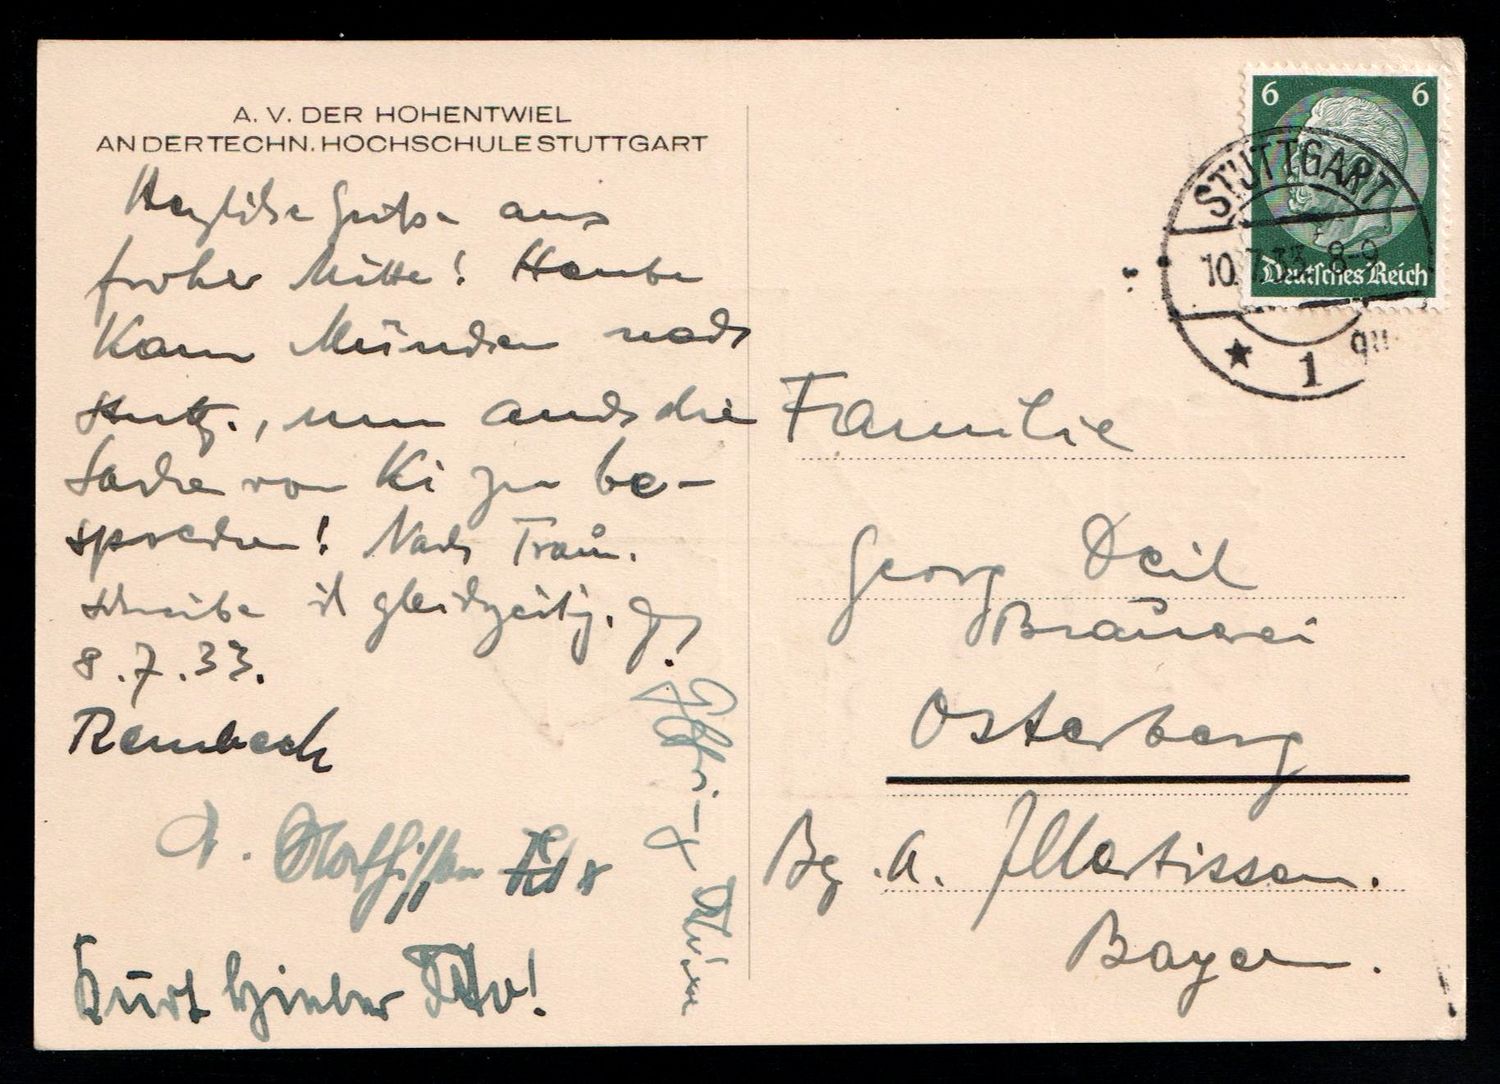 A. V. DER HOHENTWIEL
AN DER TECHN. HOCHSCHULE STUTTGART
Herzliche Grüße aus
froher Mitte! Heute
kam München nach
Stuttg., um auch die
Sache von Ki zu be-
sprechen! Nach Traun.
schreibe ich gleichzeitig.
8.7.33.
Rembeck
Kurt Hieber
6 6
Deutsches Reich
STUTTGART
10.7.33. 8-9
★ 1
Familie
Georg Deil
Brauerei
Osterberg
Bz. A. Illertissen.
Bayern.